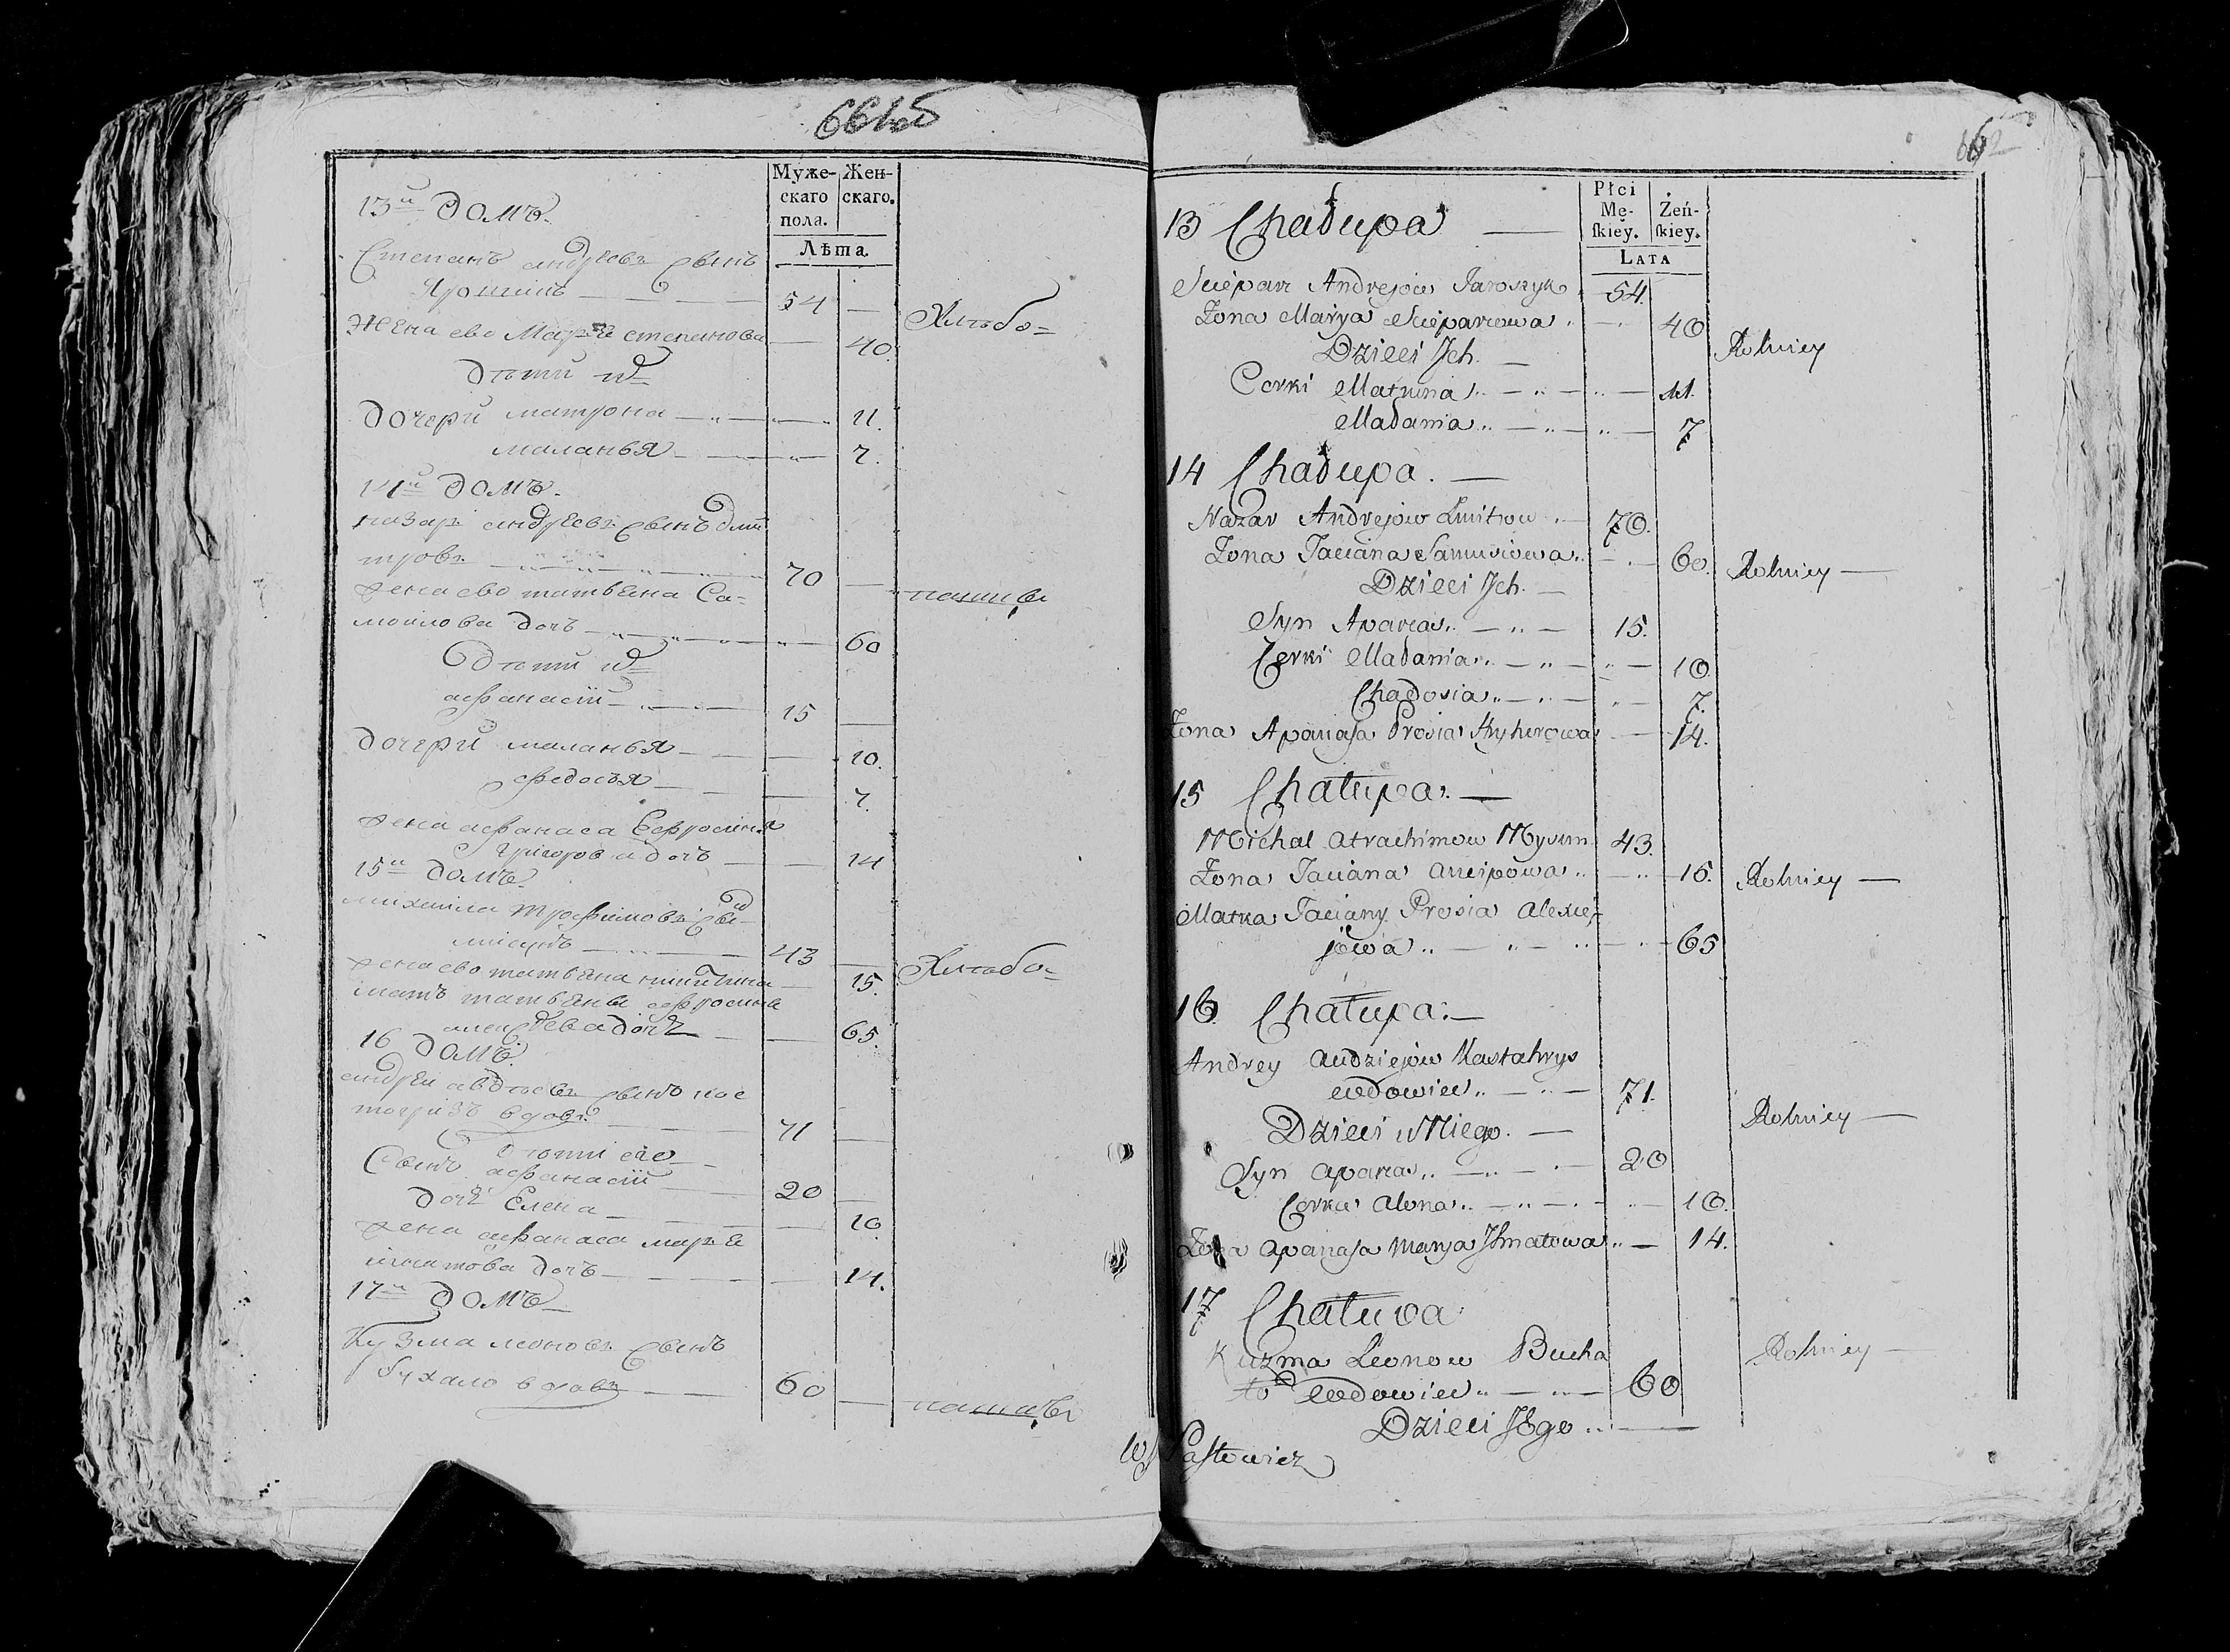 661об
Муже-
скаго
пола.
Жен-
скаго.
Лѣта.
13й домъ.
Степанъ андреевъ сынъ
Ярошикъ 54
Жена ево Марья степанова 40
Хлѣбо=
дѣти их
дочери матрона 11.
маланья 7.
14й домъ.
назар андреевъ сынъ дми
тровъ 70
жена ево татьяна Са=
мойлова дочь 60
пашцы
дѣти их
афанасiй 15
дочери маланья 10.
федосья 7.
жена афанаса Ефросинья
григорова дочь 14
15й домъ.
михаила трофимовъ сы-
мисунъ 43
Хлѣбо=
жена ево татьяна 15.
мать татьяны ефросинья
алексѣева дочь 65.
16 домъ.
андрей авдѣевъ сынъ кос
тогризъ вдовъ 71
дѣти ево
сынъ афанасiй 20
дочь Елена 10
жена афанаса марья
игнатова дочь 14.
17й домъ
Кузма леоновъ сынъ
бухало вдовъ 60
пашцы
662
Płci
Mę-
skiey.
Żeń-
skiey.
LATA
13 Chałupa
Sciepan Andrejow Jaroszyk 54.
Żona Marya Sciepanowa 40
Rolnicy
Dzieci Ich.
Corki Matruna 11.
Małania 7
14 Chałupa.
Nazar Andrejow Dmitrow 70.
Żona Taciana Samusiowa 60.
Rolnicy
Dzieci Ich.
Syn Apanas 15.
Corki Małania 10
Chadosia 7.
Żona Apanasa Prosia Hryhorowa 14.
15 Chałupa.
Michał Atrachimow Mysun 43.
Żona Taciana Ancipowa 15.
Rolnicy
Matka Taciany Prosia Alexie-
jowa 65
16 Chałupa.
Andrey Audziejow Kastahryz
wdowiec 71.
Rolnicy
Dzieci u Niego.
Syn Apanas 20
Corka Alona 10.
Żona Apanasa Marya Ihnatowa 14.
17 Chałupa
Kuzma Leonow Bucha
ło wdowiec 60
Rolnicy
Dzieci Jego